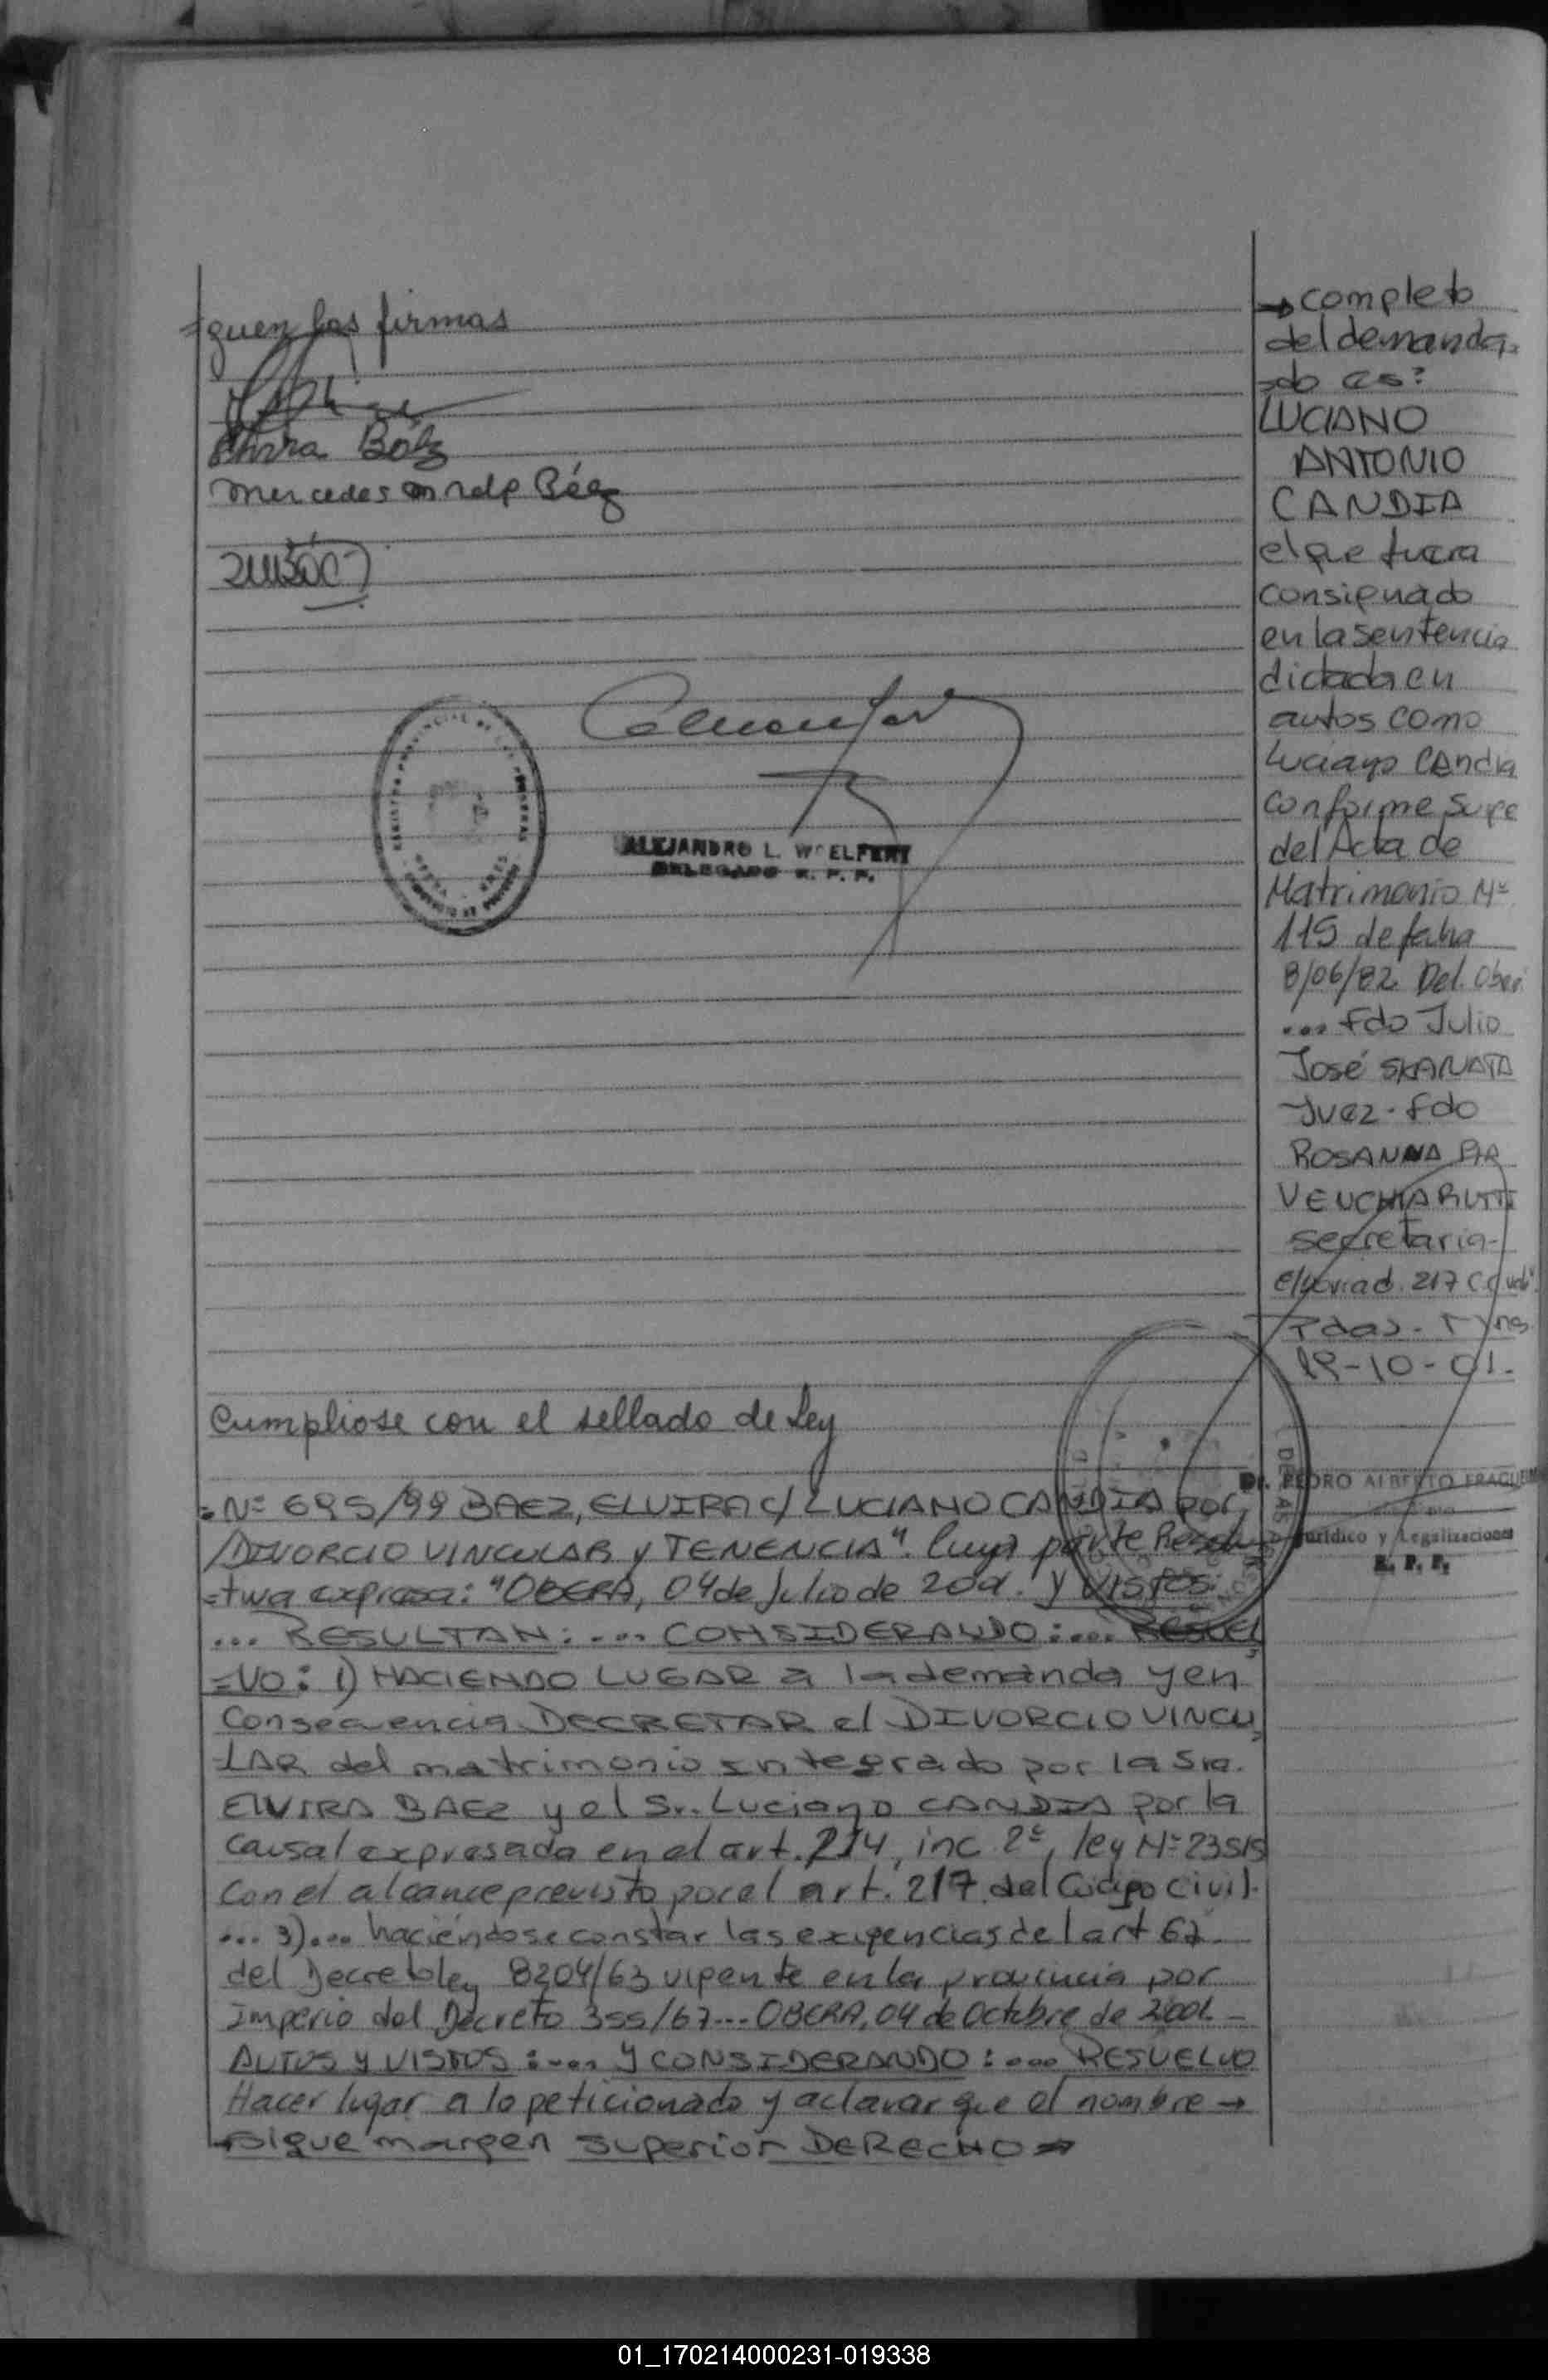 =guen las firmas
Elvira Báez
Mercedes Báez
ALEJANDRO L. WOELFERT
DELEGADO R. P. P.
Cumpliose con el sellado de Ley
=Nº 695/99 BAEZ, ELVIRA c/ LUCIANO CANDIA por
DIVORCIO VINCULAR y TENENCIA". Cuya parte Resolu-
=tiva expresa: "OBERA, 04 de Julio de 2001. Y VISTOS:
... RESULTAN: ... CONSIDERANDO: ... RESUEL
=VO: 1) HACIENDO LUGAR a la demanda y en
Consecuencia DECRETAR el DIVORCIO VINCU
-LAR del matrimonio integrado por la Sra.
ELVIRA BAEZ y el Sr. Luciano CANDIA por la
causal expresada en el art. 214, inc. 2º, ley Nº 23515
Con el alcance previsto por el art. 217 del Código Civil.
... 3)... haciéndose constar las exigencias del art 67
del Decreto ley 8204/63 vigente en la provincia por
Imperio del Decreto 355/67... OBERA, 04 de Octubre de 2001 -
AUTOS Y VISTOS: ... y CONSIDERANDO: ... RESUELVO
Hacer lugar a lo peticionado y aclarar que el nombre →
→Sigue margen superior DERECHO →
→ completo
del demanda-
=do es:
LUCIANO
ANTONIO
CANDIA
el que fuera
consignado
en la sentencia
dictada en
autos como
Luciano CAndia
conforme surge
del Acta de
Matrimonio Nº
115 de fecha
8/06/82 Del. Oberá
... Fdo Julio
José SKANATA
Juez. Fdo
ROSANNA PIA
VENCHIARUTTI
secretaria-
217 C. Civil"
Pdas. - Mnes
19-10-01.
Dr. PEDRO ALBERTO
Jurídico y Legalizaciones
R. P. P.
01_170214000231-019338